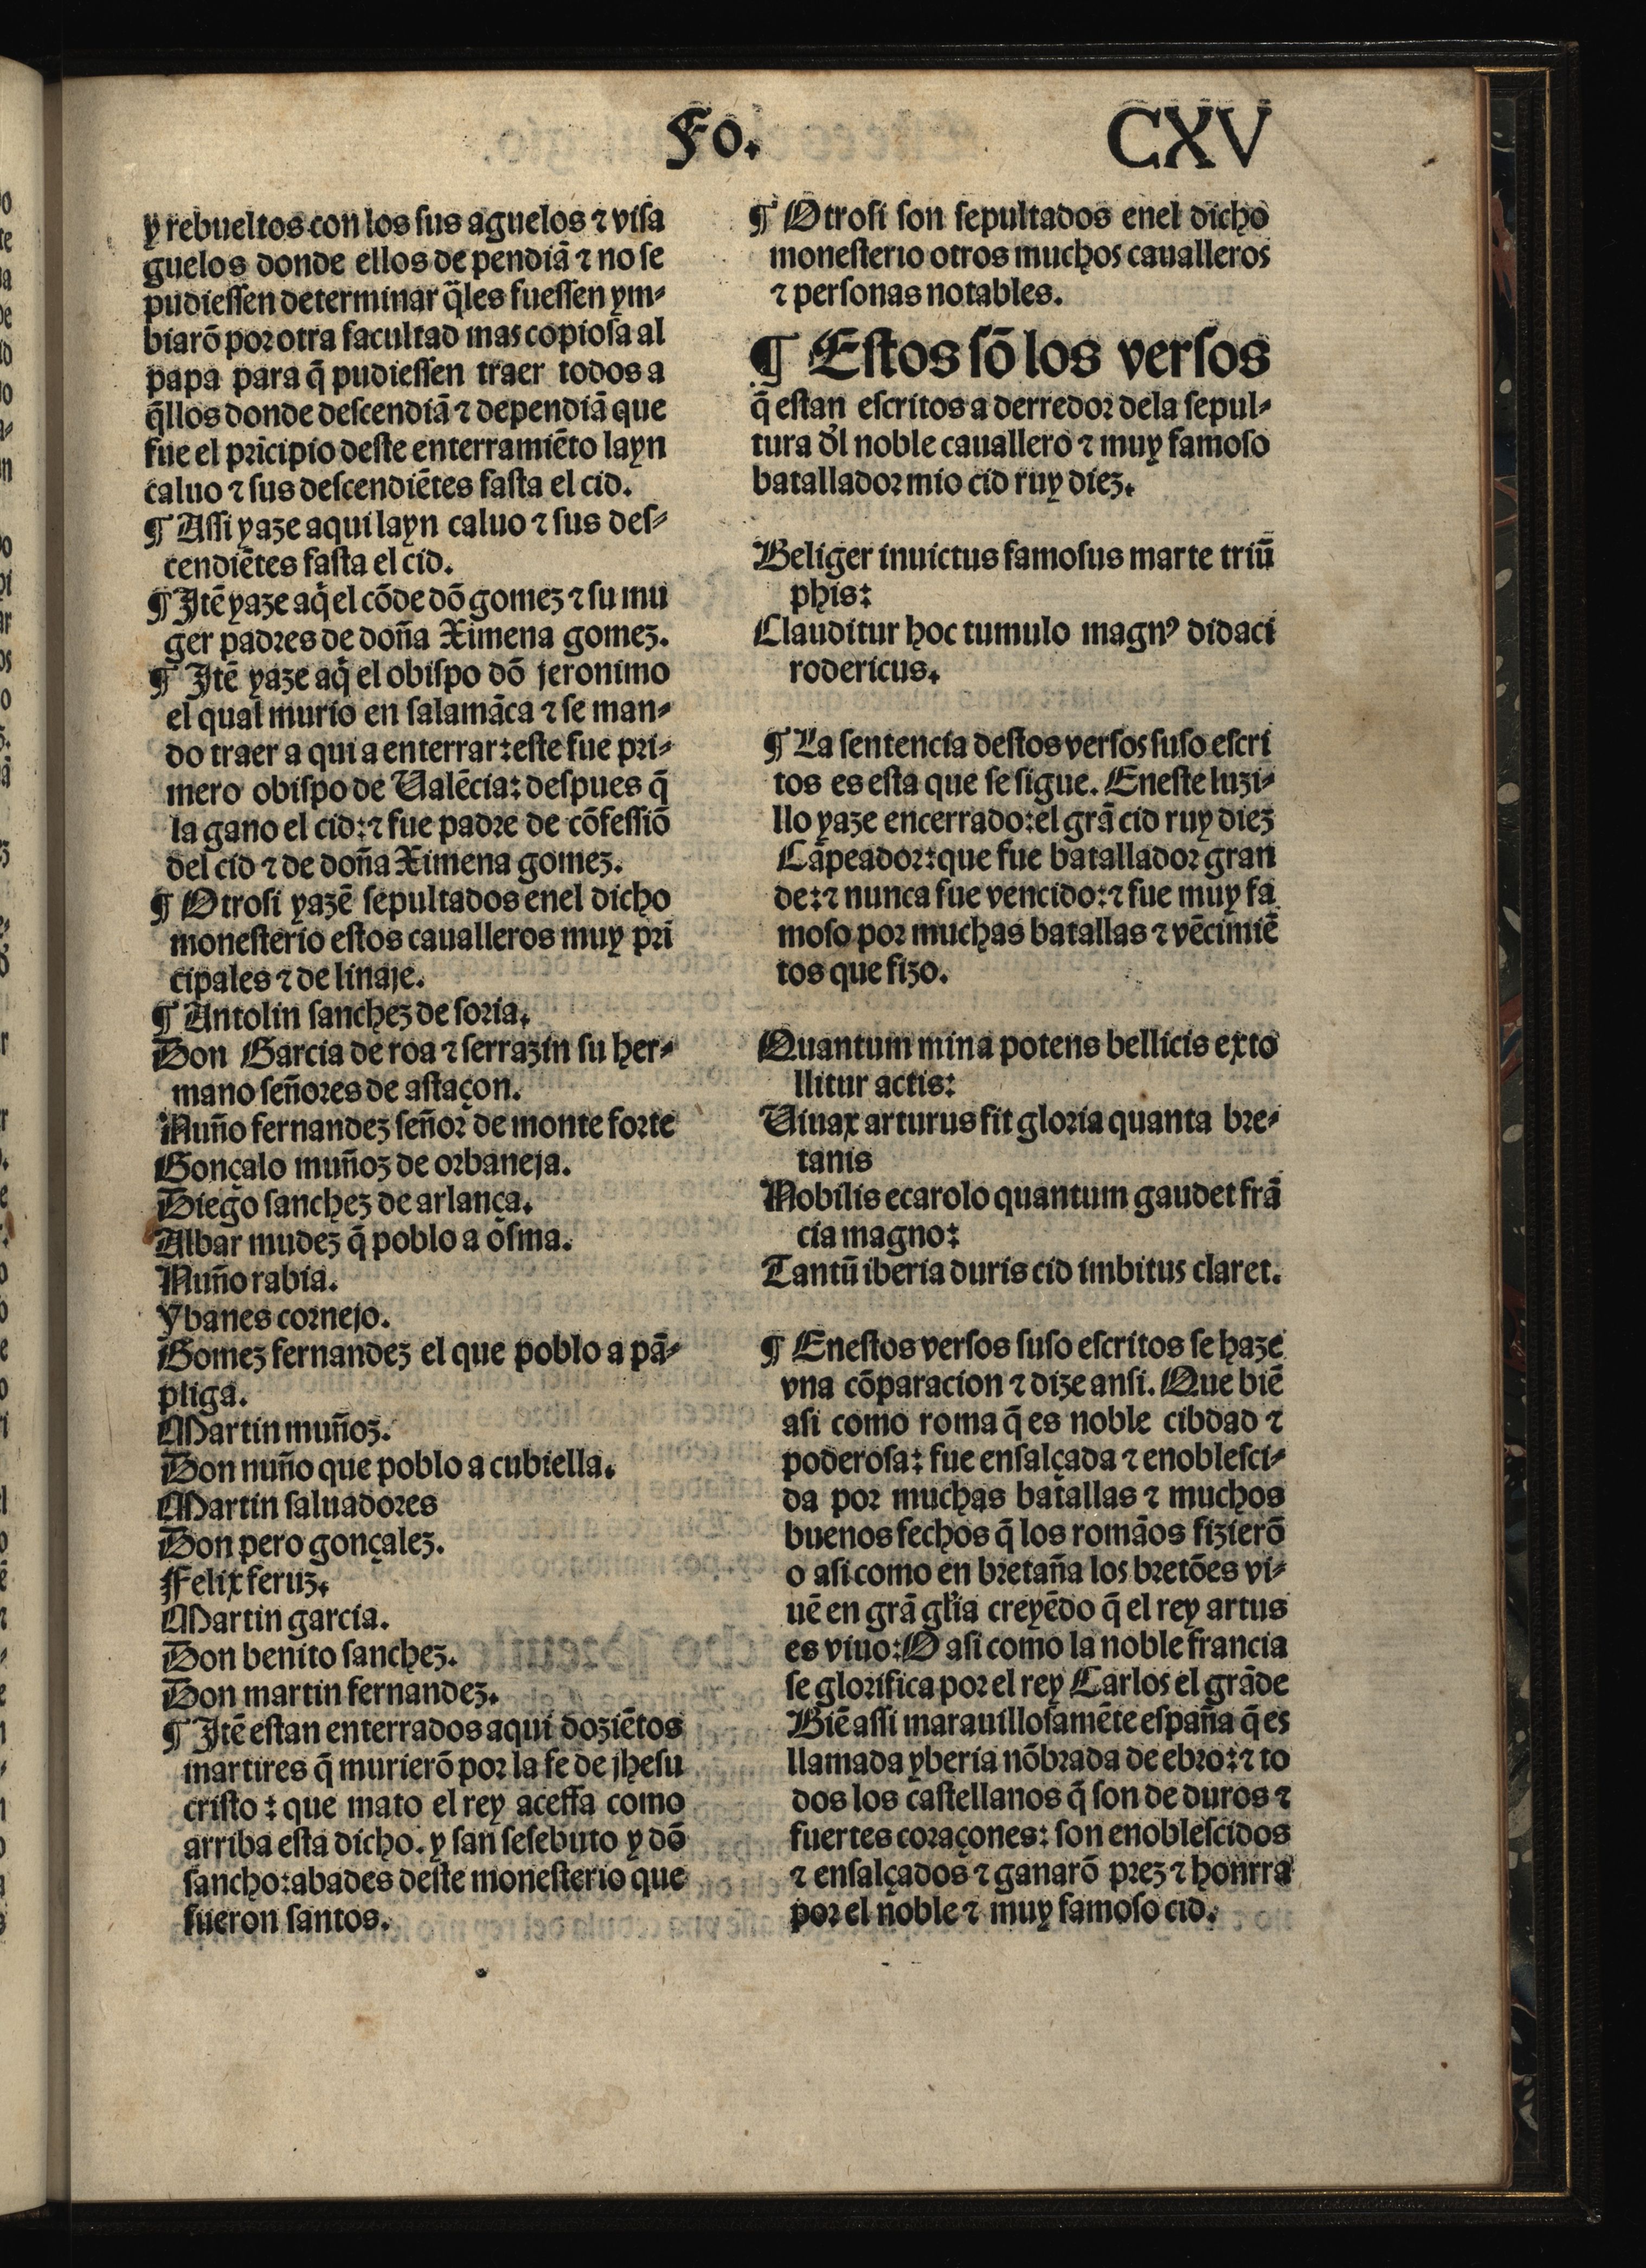 Fo. CXV
y rebueltos con los sus aguelos ⁊ visa
guelos donde ellos de pendiã ⁊ no se
pudiessen determinar q̃les fuessen ym-
biarõ por otra facultad mas copiosa al
papa para q̃ pudiessen traer todos a
q̃llos donde descendiã ⁊ dependiã que
fue el pricipio deste enterramiẽto layn
caluo ⁊ sus descendiẽtes fasta el cid.
¶ Assi yaze aqui layn caluo ⁊ sus des-
cendiẽtes fasta el cid.
¶ Itẽ yaze aq̃ el cõde dõ gomez ⁊ su mu
ger padres de doña Ximena gomez.
¶ Itẽ yaze aq̃ el obispo dõ jeronimo
el qual murio en salamãca ⁊ se man-
do traer a qui a enterrar: este fue pri-
mero obispo de Ualẽcia: despues q̃
la gano el cid: ⁊ fue padre de cõfessiõ
del cid ⁊ de doña Ximena gomez.
¶ Otrosi yazẽ sepultados enel dicho
monesterio estos caualleros muy pri
cipales ⁊ de linaje.
¶ Antolin sanchez de soria.
Don Garcia de roa ⁊ serrazin su her-
mano señores de astaçon.
Nuño fernandez señor de monte forte
Gonçalo muñoz de orbaneja.
Diego sanchez de arlança.
Albar mudez q̃ poblo a osma.
Nuño rabia.
Ybanes cornejo.
Gomez fernandez el que poblo a pã-
pliga.
Martin muñoz.
Don nuño que poblo a cubiella.
Martin saluadores
Don pero gonçalez.
Felix feruz.
Martin garcia.
Don benito sanchez.
Don martin fernandez.
¶ Itẽ estan enterrados aqui doziẽtos
martires q̃ murierõ por la fe de jhesu
cristo: que mato el rey aceffa como
arriba esta dicho. y san sesebuto y dõ
sancho: abades deste monesterio que
fueron santos.
¶ Otrosi son sepultados enel dicho
monesterio otros muchos caualleros
⁊ personas notables.
¶ Estos sõ los versos
q̃ estan escritos a derredor dela sepul-
tura d̓l noble cauallero ⁊ muy famoso
batallador mio cid ruy diez.
Beliger inuictus famosus marte triũ
phis:
Clauditur hoc tumulo magnꝰ didaci
rodericus.
¶ La sentencia destos versos suso escri
tos es esta que se sigue. Eneste luzi-
llo yaze encerrado: el grã cid ruy diez
Cãpeador: que fue batallador gran
de: ⁊ nunca fue vencido: ⁊ fue muy fa
moso por muchas batallas ⁊ vẽcimiẽ
tos que fizo.
Quantum mina potens bellicis exto
llitur actis:
Uiuax arturus fit gloria quanta bre-
tanis
Nobilis ecarolo quantum gaudet frã
cia magno:
Tantũ iberia duris cid imbitus claret.
¶ Enestos versos suso escritos se haze
vna cõparacion ⁊ dize ansi. Que biẽ
asi como roma q̃ es noble cibdad ⁊
poderosa: fue ensalçada ⁊ enoblesci-
da por muchas batallas ⁊ muchos
buenos fechos q̃ los romãos fizierõ
o asi como en bretaña los bretões vi-
uẽ en grã gl̃ia creyẽdo q̃ el rey artus
es viuo: O asi como la noble francia
se glorifica por el rey Carlos el grãde
Biẽ assi marauillosamẽte españa q̃ es
llamada yberia nõbrada de ebro: ⁊ to
dos los castellanos q̃ son de duros ⁊
fuertes coraçones: son enoblescidos
⁊ ensalçados ⁊ ganarõ prez ⁊ honrra
por el noble ⁊ muy famoso cid.